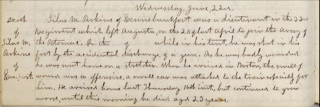 Wednesday, June 22nd.
Death Silas M. Perkins of Kennebunkport was a lieutenant in the 32nd
of Regiment which left Augusta, on the 20 of last April to join the army of
Silas M. the Potomac. On the while in his tent, he was shot in his
Perkins foot by the accidental discharge of a gun. As he was badly wounded
of he was sent home on a stretcher. When he arrived in Boston, the smell of
Kennebunkport. wound was so offensive, a small car was attached to the train expressly for
him. He arrived home last Thursday 16th inst, but continued to grow
worse, until this morning he died aged 23 years.